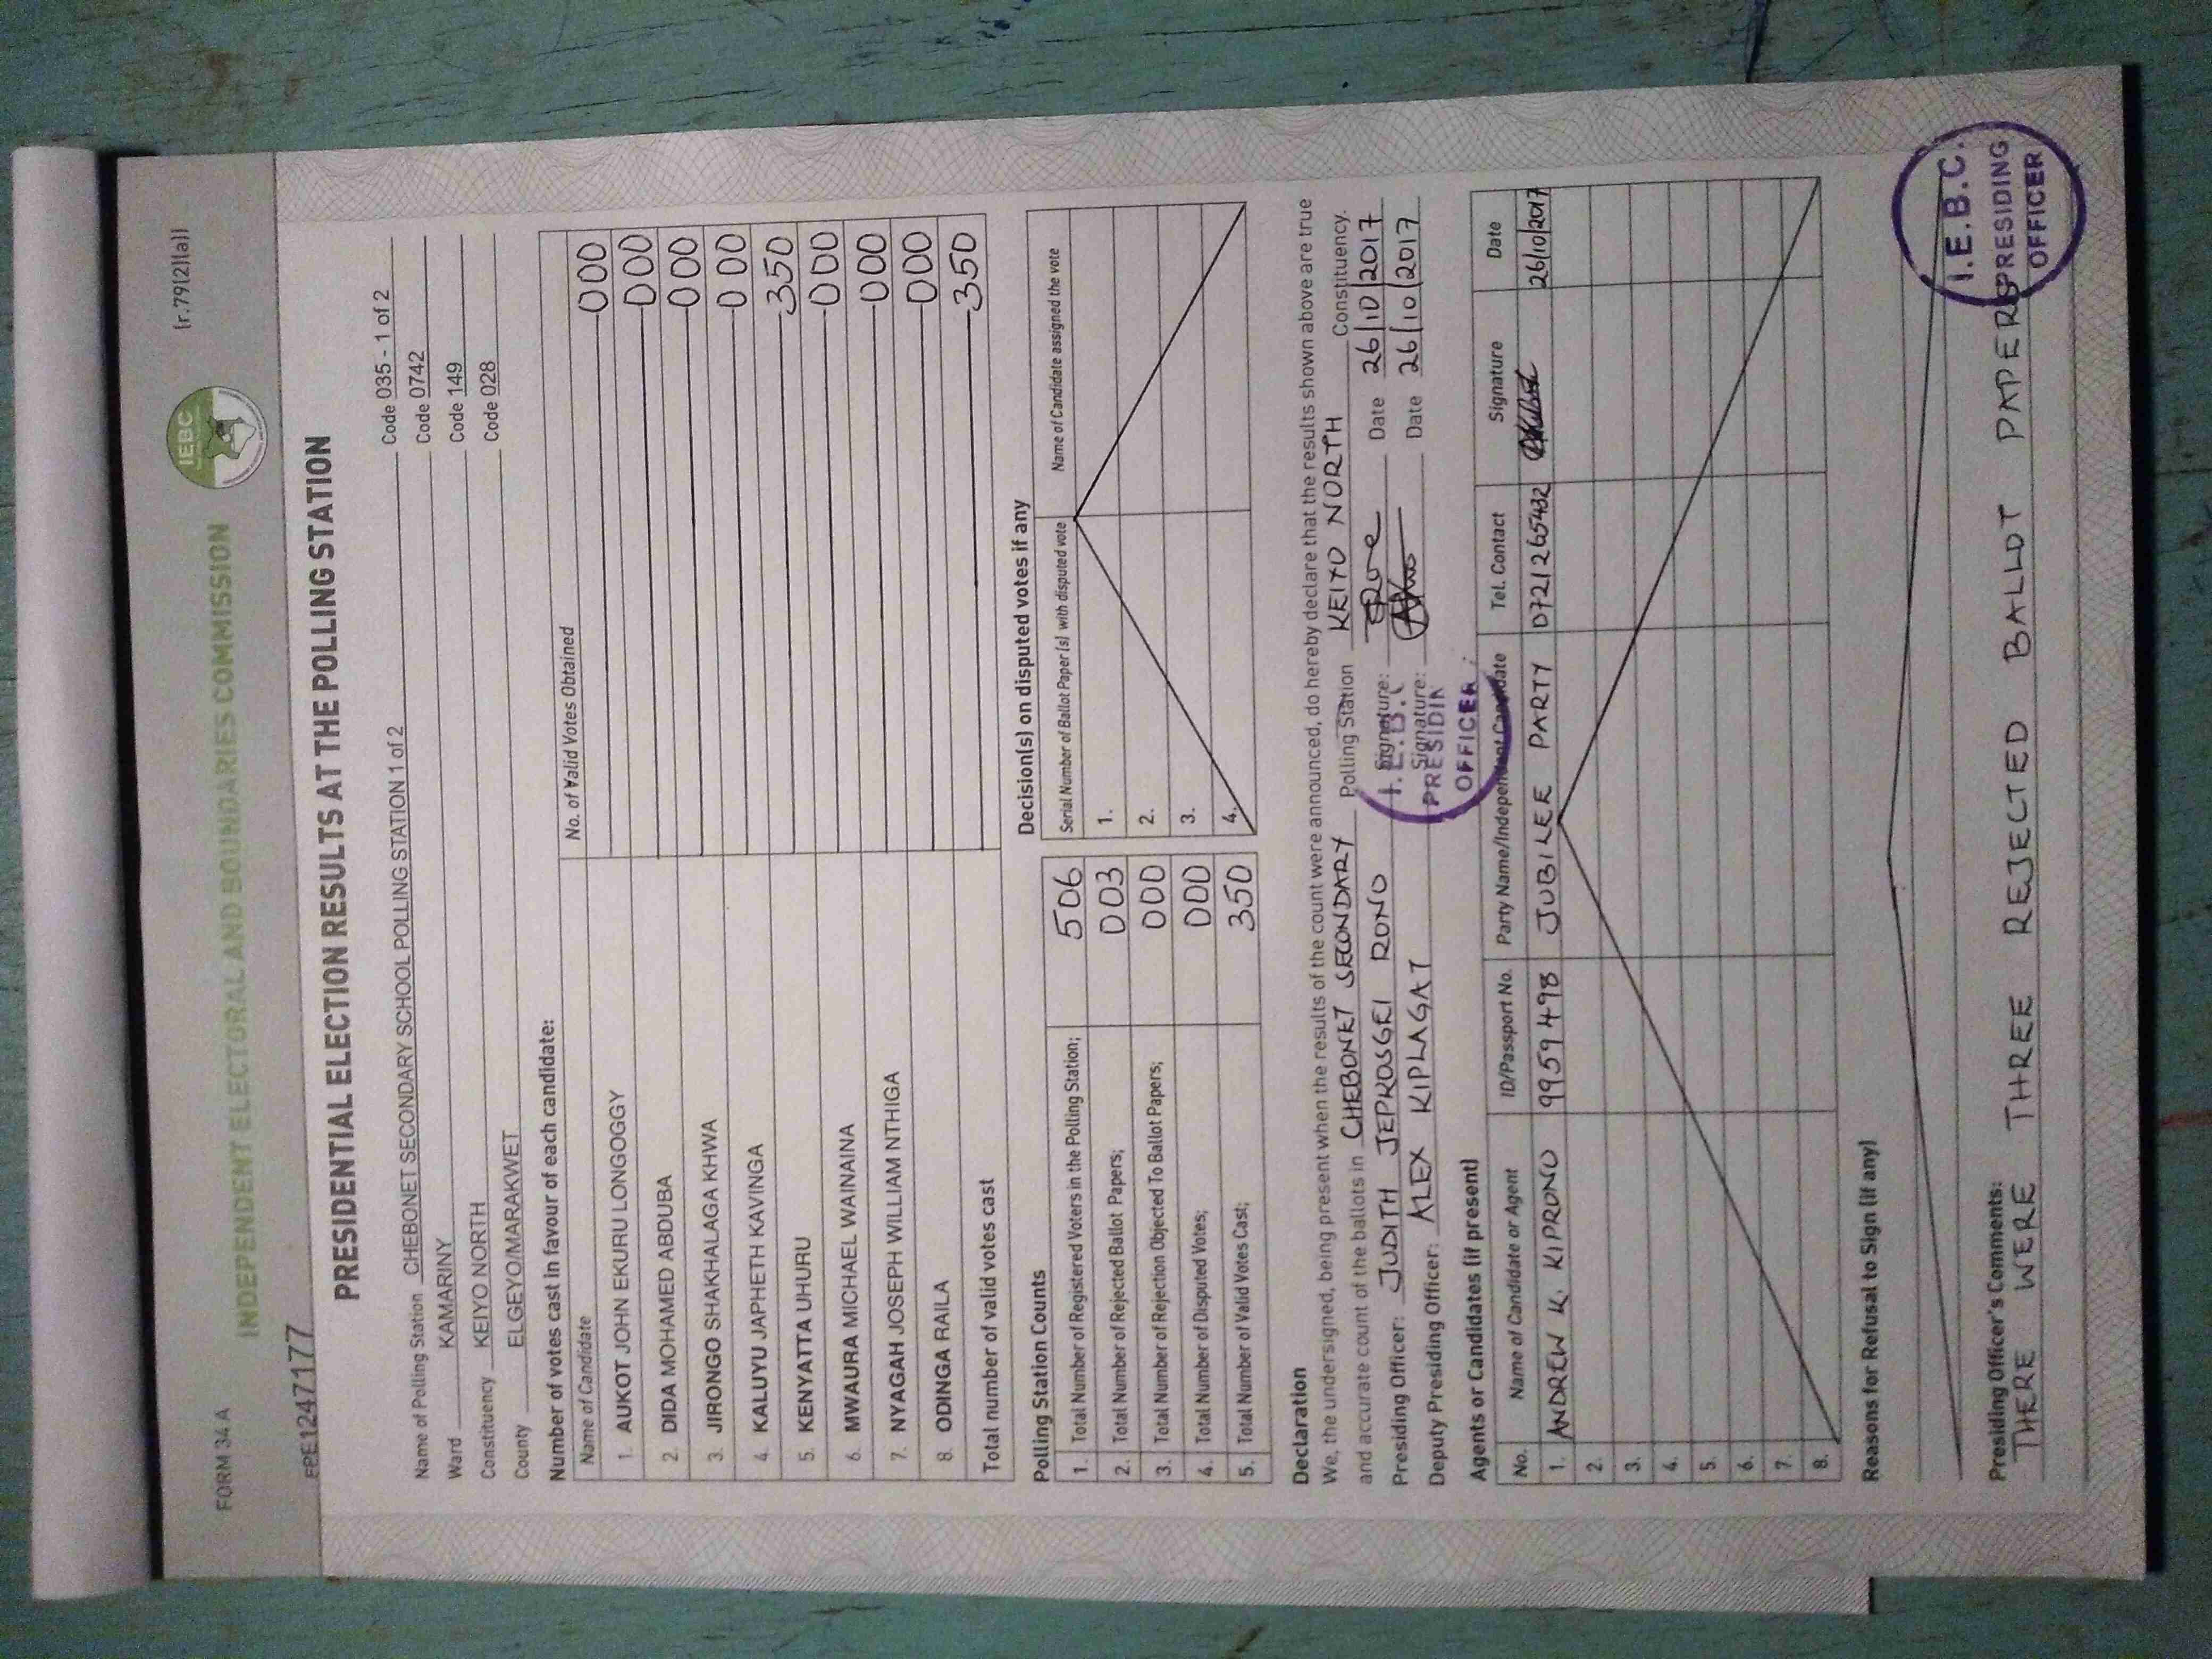 FORM 34 A
[r.79(2)(a)]
INDEPENDENT ELECTORAL AND BOUNDARIES COMMISSION
IEBC
EPE1247177
PRESIDENTIAL ELECTION RESULTS AT THE POLLING STATION
Name of Polling Station CHEBONET SECONDARY SCHOOL POLLING STATION 1 of 2 Code 035 - 1 of 2
Ward KAMARINY Code 0742
Constituency KEIYO NORTH Code 149
County ELGEYO/MARAKWET Code 028
Number of votes cast in favour of each candidate:
Name of Candidate No. of Valid Votes Obtained
1. AUKOT JOHN EKURU LONGOGGY 000
2. DIDA MOHAMED ABDUBA 000
3. JIRONGO SHAKHALAGA KHWA 000
4. KALUYU JAPHETH KAVINGA 000
5. KENYATTA UHURU 350
6. MWAURA MICHAEL WAINAINA 000
7. NYAGAH JOSEPH WILLIAM NTHIGA 000
8. ODINGA RAILA 000
Total number of valid votes cast 350
Polling Station Counts
1. Total Number of Registered Voters in the Polling Station; 506
2. Total Number of Rejected Ballot Papers; 003
3. Total Number of Rejection Objected To Ballot Papers; 000
4. Total Number of Disputed Votes; 000
5. Total Number of Valid Votes Cast; 350
Decision(s) on disputed votes if any
Serial Number of Ballot Paper(s) with disputed vote Name of Candidate assigned the vote
1.
2.
3.
4.
Declaration
We, the undersigned, being present when the results of the count were announced, do hereby declare that the results shown above are true
and accurate count of the ballots in CHEBONET SECONDARY Polling Station KEIYO NORTH Constituency.
Presiding Officer: JUDITH JEPKOSGEI RONO Signature: Date 26/10/2017
Deputy Presiding Officer: ALEX KIPLAGAT Signature: Date 26/10/2017
I.E.B.C
PRESIDIN
OFFICER
Agents or Candidates (if present)
No. Name of Candidate or Agent ID/Passport No. Party Name/Independent Candidate Tel. Contact Signature Date
1. ANDREW K. KIPRONO 9959498 JUBILEE PARTY 0721265432 26/10/2017
2.
3.
4.
5.
6.
7.
8.
Reasons for Refusal to Sign (if any)
Presiding Officer's Comments:
THERE WERE THREE REJECTED BALLOT PAPERS
I.E.B.C.
PRESIDING
OFFICER